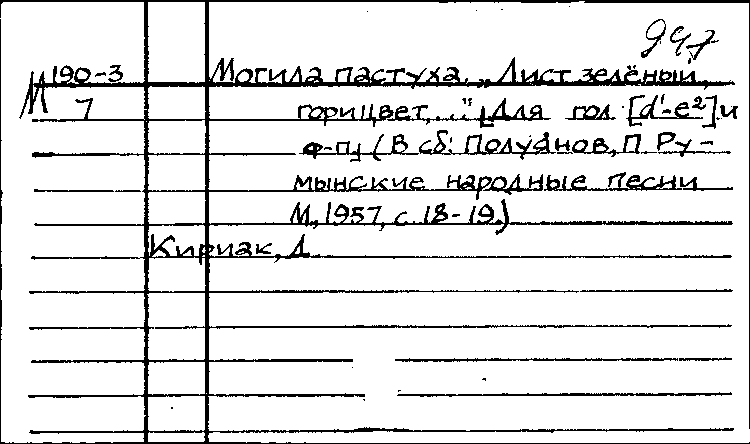 947
М 190-3 Могила пастуха. „Лист зелёный,
7 горицвет,..." [Для гол [d¹-e²] и
ф-п] (В сб: Полуянов, П Ру-
мынские народные песни
М, 1957, с 18-19.)
Кириак, Д